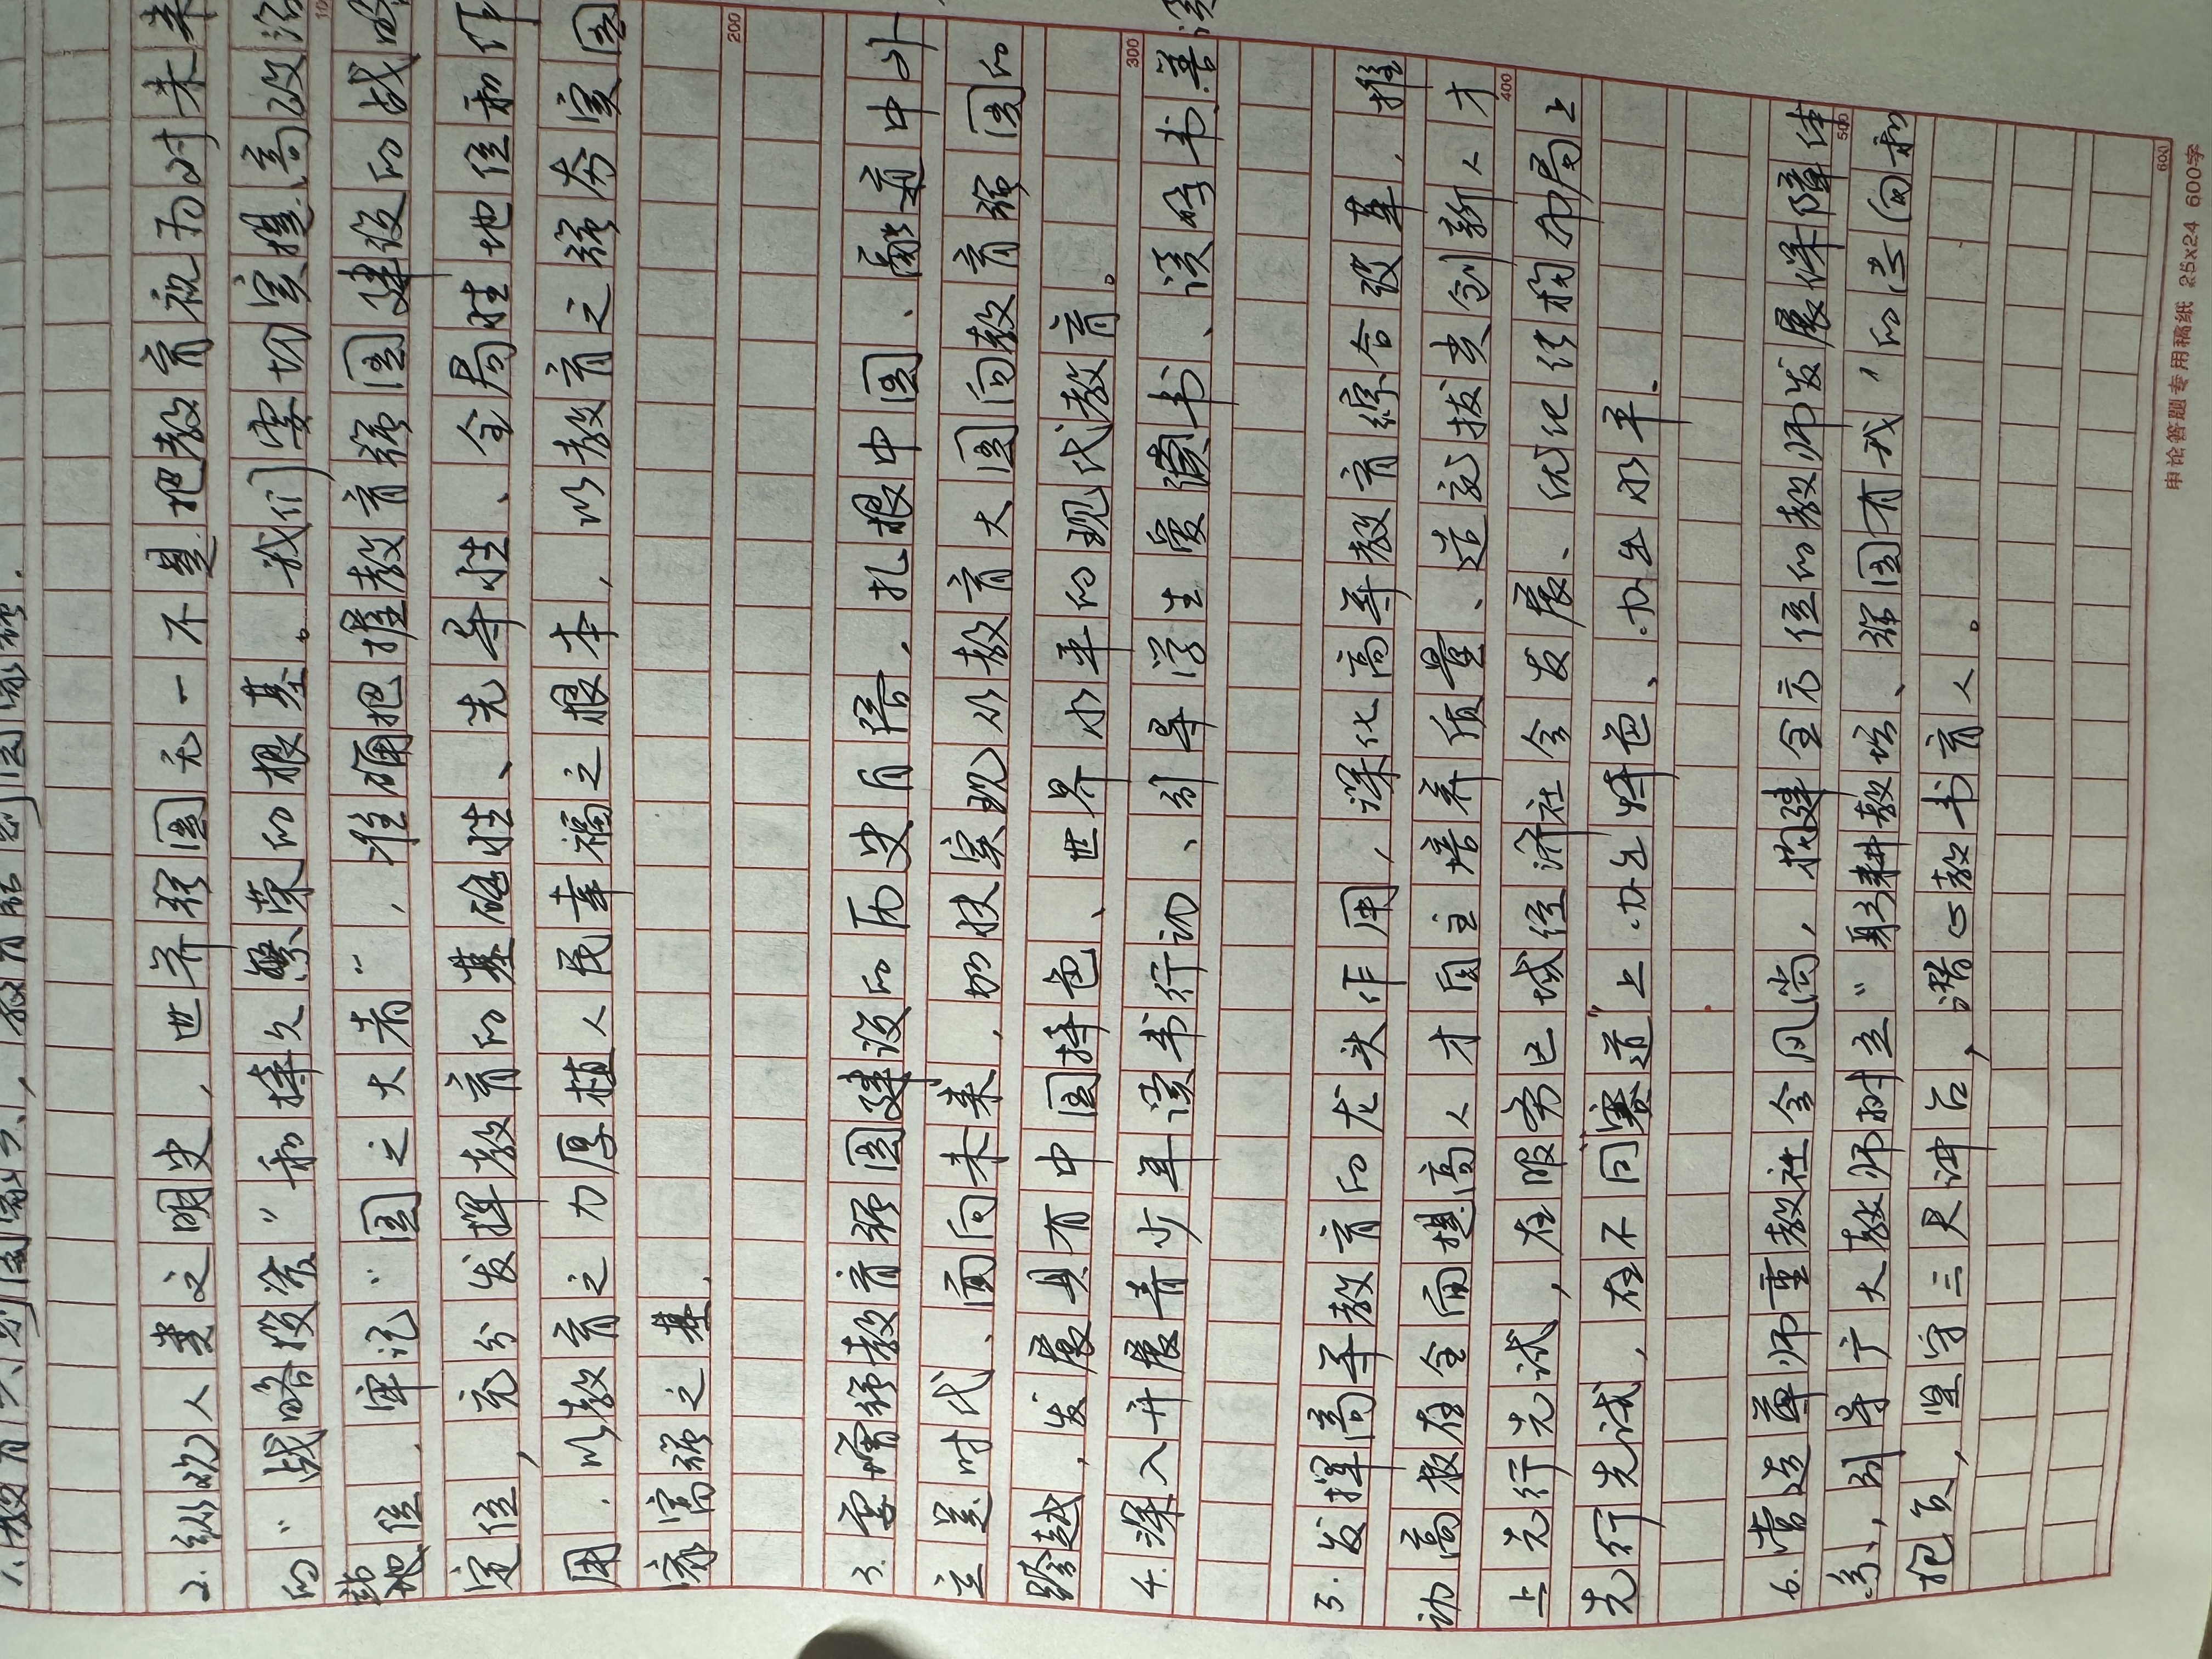 1.教育兴则国家兴，教育强则国家强.
2.纵观人类文明史，世界强国无一不是把教育视为对未来
的“战略投资”和持久繁荣的根基。我们要切实提高政治
站
地位，牢记“国之大者”，准确把握教育强国建设的战略
定位，充分发挥教育的基础性、先导性、全局性地位和作
用，以教育之力厚植人民幸福之根本，以教育之强夯实国
家富强之基.
200
3.要增强教育强国建设的历史自信，扎根中国、融通中外，
立足时代、面向未来，加快实现从教育大国向教育强国的
跨越，发展具有中国特色、世界水平的现代教育。
300
4.深入开展青少年读书行动、引导学生爱读书、读好书、善读
5.发挥高等教育的龙头作用，深化高等教育综合改革，推
动高校在全面提高人才自主培养质量、造就拔尖创新人才
400
上先行先试，在服务区域经济社会发展、优化结构布局上
先行先试，在不同“赛道”上办出特色、办出水平.
6.营造尊师重教社会风尚，构建全方位的教师发展保障体
500
系，引导广大教师树立“躬耕教坛、强国有我”的志向和
抱负，坚守三尺讲台，潜心教书育人。
600
申论答题专用稿纸 25x24 600字